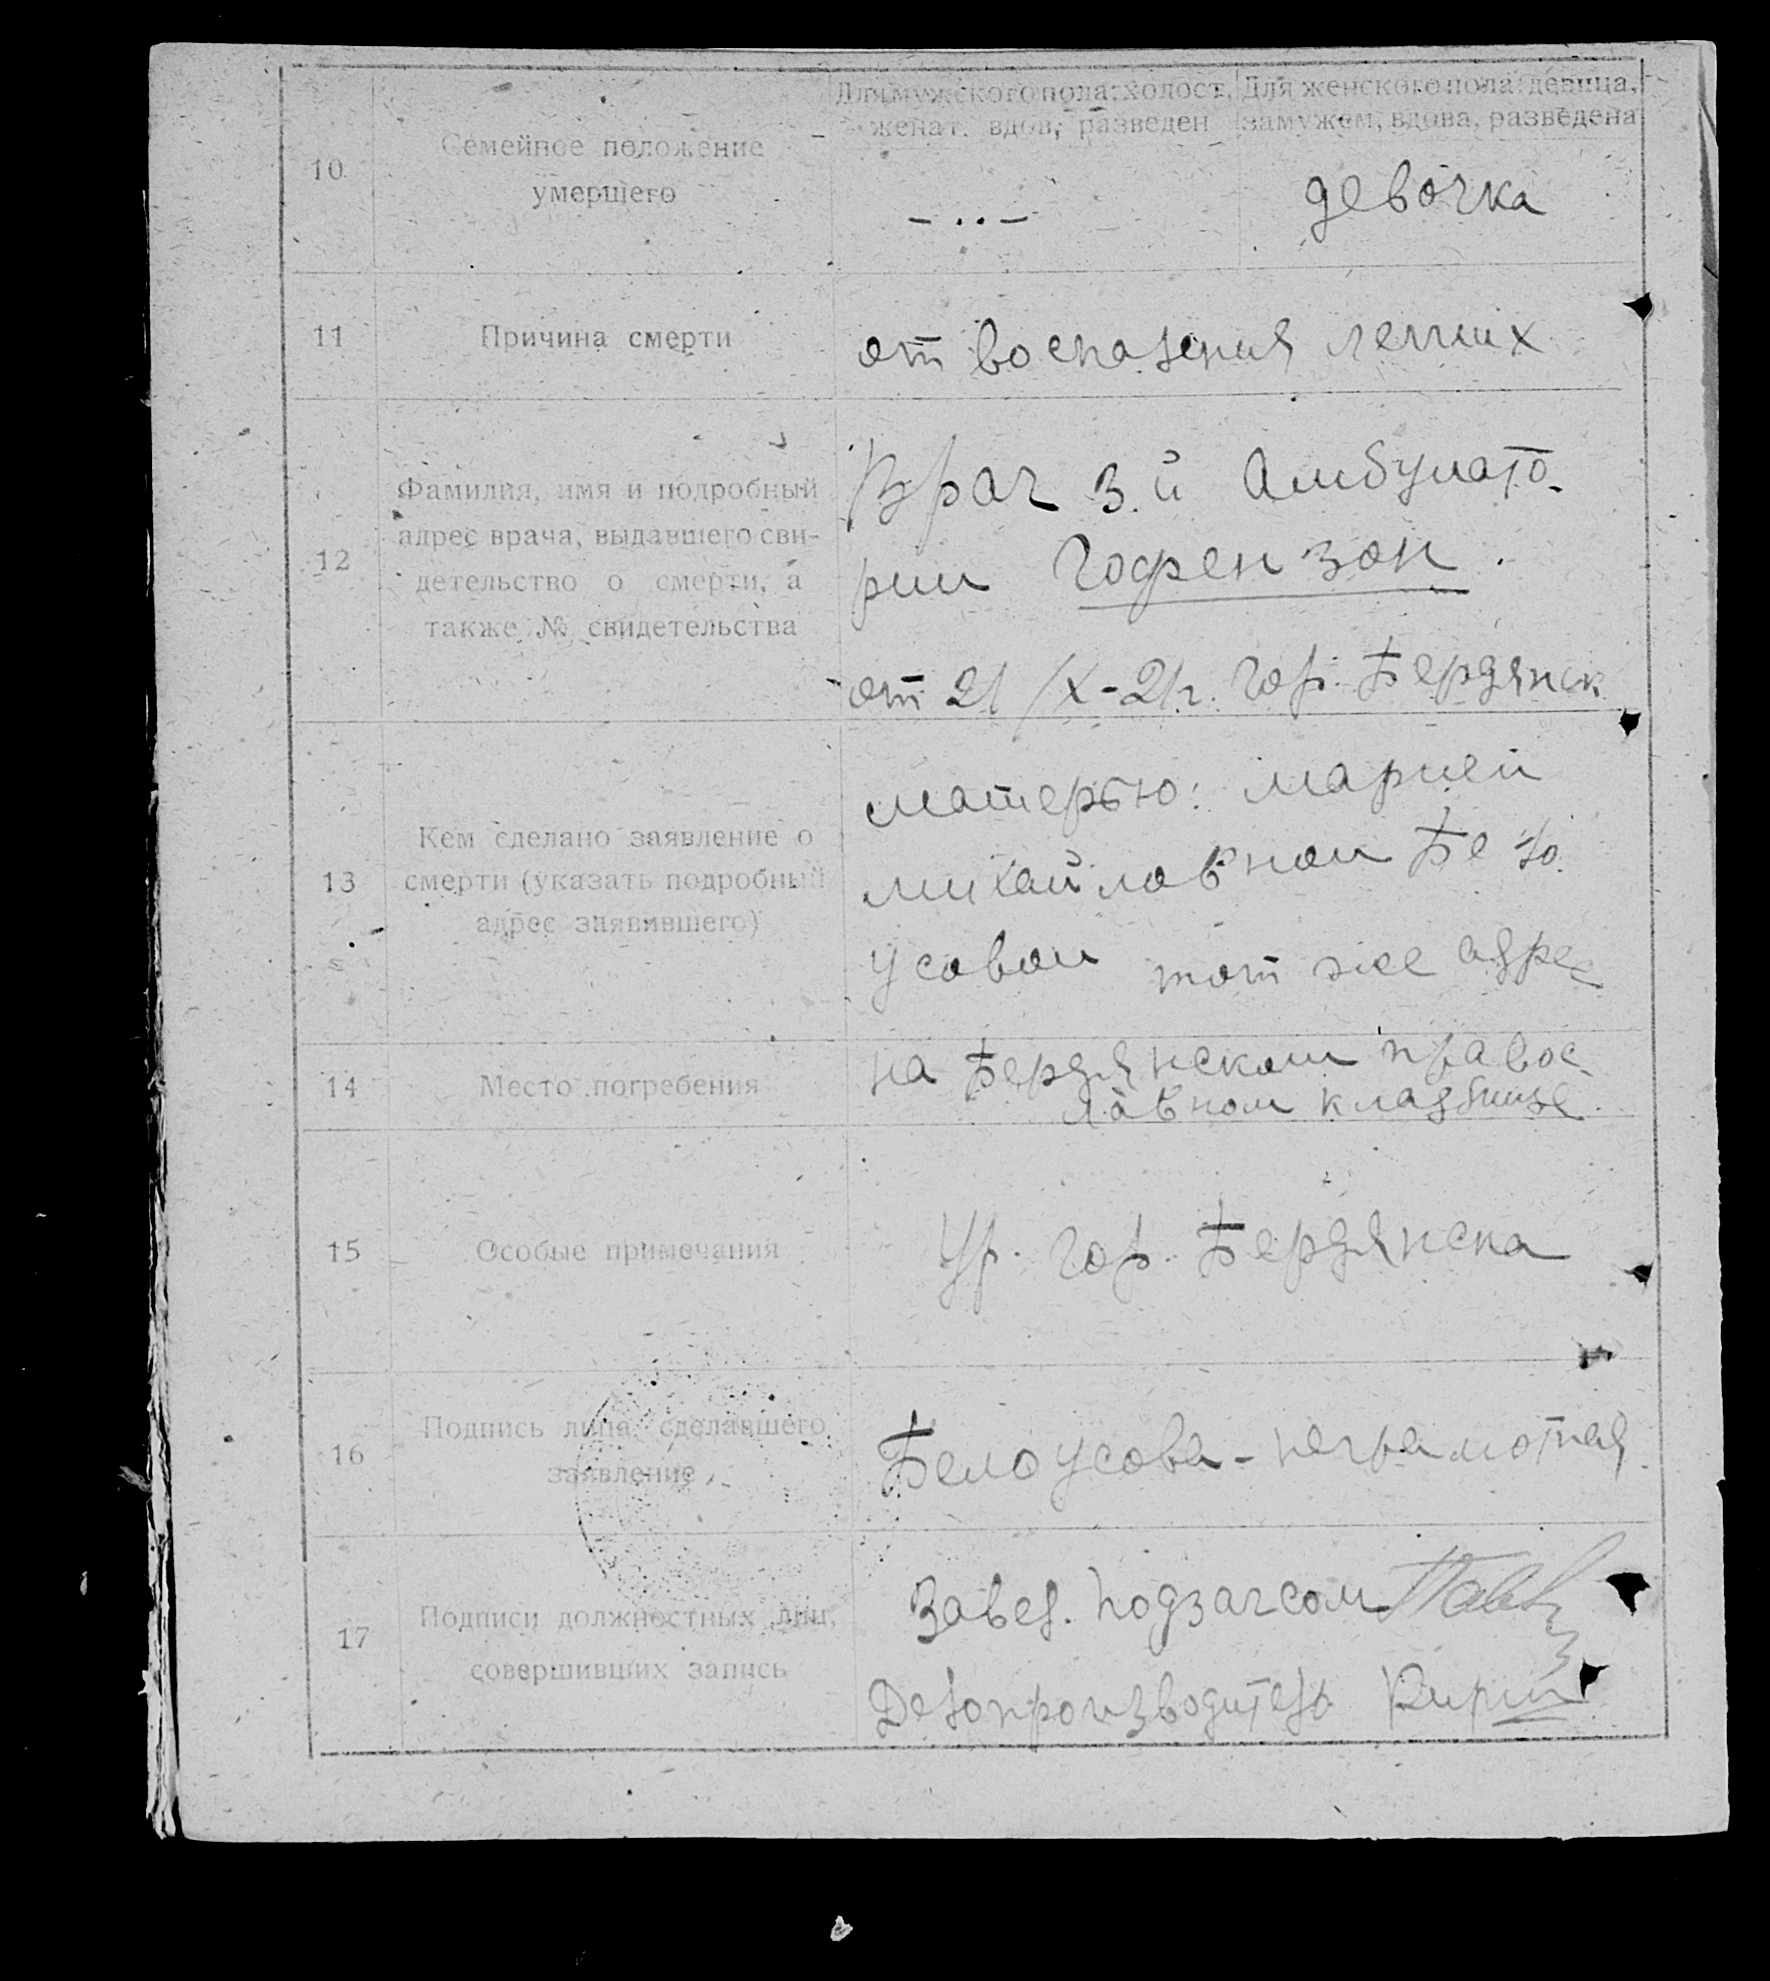 Для мужского пола: холост, женат, вдов, разведен
Для женского пола: девица, замужем, вдова, разведена
10
Семейное положение
умершего
девочка
11
Причина смерти
от воспаления легких
12
Фамилия, имя и подробный
адрес врача, выдавшего сви-
детельство о смерти, а
также № свидетельства
Врач 3.й Амбулато-
рии Гофензон.
от 21/X-21г. гор. Бердянск
13
Кем сделано заявление о
смерти (указать подробный
адрес заявившего)
матерью: Марией
Михайловной Бело-
усовой тот же адрес
14
Место погребения
на Бердянском правос-
лавном кладбище
15
Особые примечания
Ур. гор. Бердянска
16
Подпись лица, сделавшего
заявление
Белоусова - неграмотная
17
Подписи должностных лиц,
совершивших запись
Завед. подзагсом
Делопроизводитель